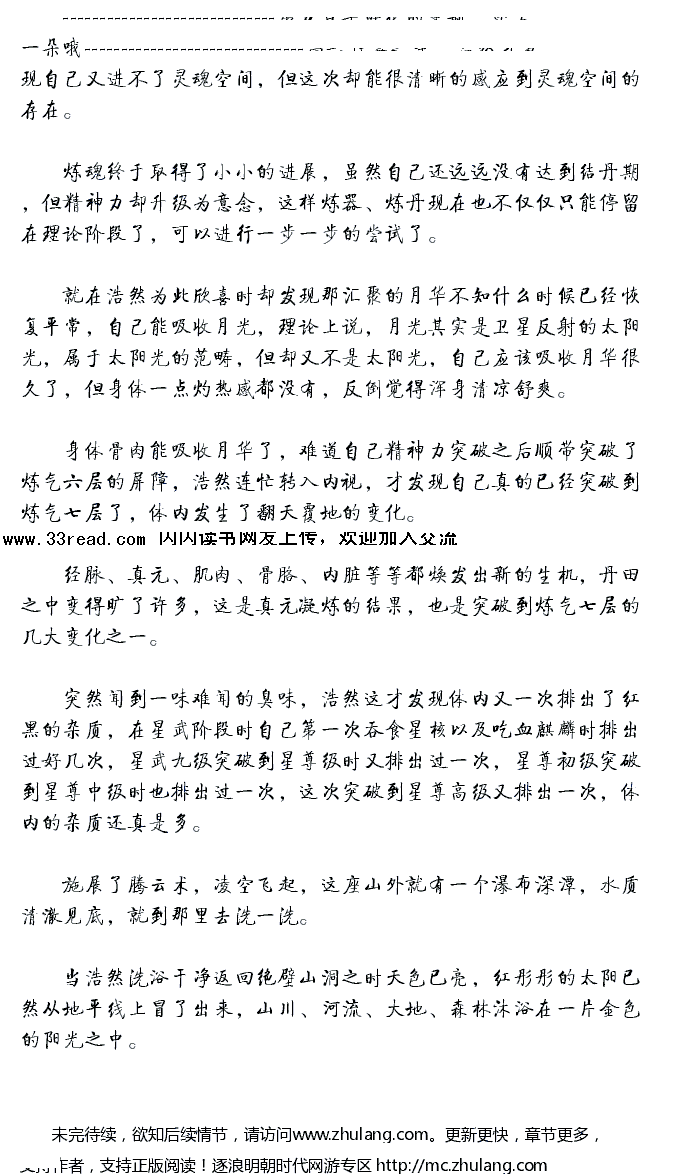 一朵哦--------------------------------
现自己又进不了灵魂空间，但这次却能很清晰的感应到灵魂空间的
存在。
炼魂终于取得了小小的进展，虽然自己还远远没有达到结丹期
，但精神力却升级为意念，这样炼器、炼丹现在也不仅仅只能停留
在理论阶段了，可以进行一步一步的尝试了。
就在浩然为此欣喜时却发现那汇聚的月华不知什么时候已经恢
复平常，自己能吸收月光，理论上说，月光其实是卫星反射的太阳
光，属于太阳光的范畴，但却又不是太阳光，自己应该吸收月华很
久了，但身体一点灼热感都没有，反倒觉得浑身清凉舒爽。
身体骨肉能吸收月华了，难道自己精神力突破之后顺带突破了
炼气六层的屏障，浩然连忙转入内视，才发现自己真的已经突破到
炼气七层了，体内发生了翻天覆地的变化。
www.33read.com 闪闪读书网友上传，欢迎加入交流
经脉、真元、肌肉、骨胳、内脏等等都焕发出新的生机，丹田
之中变得旷了许多，这是真元凝炼的结果，也是突破到炼气七层的
几大变化之一。
突然闻到一味难闻的臭味，浩然这才发现体内又一次排出了红
黑的杂质，在星武阶段时自己第一次吞食星核以及吃血麒麟时排出
过好几次，星武九级突破到星尊级时又排出过一次，星尊初级突破
到星尊中级时也排出过一次，这次突破到星尊高级又排出一次，体
内的杂质还真是多。
施展了腾云术，凌空飞起，这座山外就有一个瀑布深潭，水质
清澈见底，就到那里去洗一洗。
当浩然洗浴干净返回绝壁山洞之时天色已亮，红彤彤的太阳已
然从地平线上冒了出来，山川、河流、大地、森林沐浴在一片金色
的阳光之中。
未完待续，欲知后续情节，请访问www.zhulang.com。更新更快，章节更多，
支持作者，支持正版阅读！逐浪明朝时代网游专区 http://mc.zhulang.com